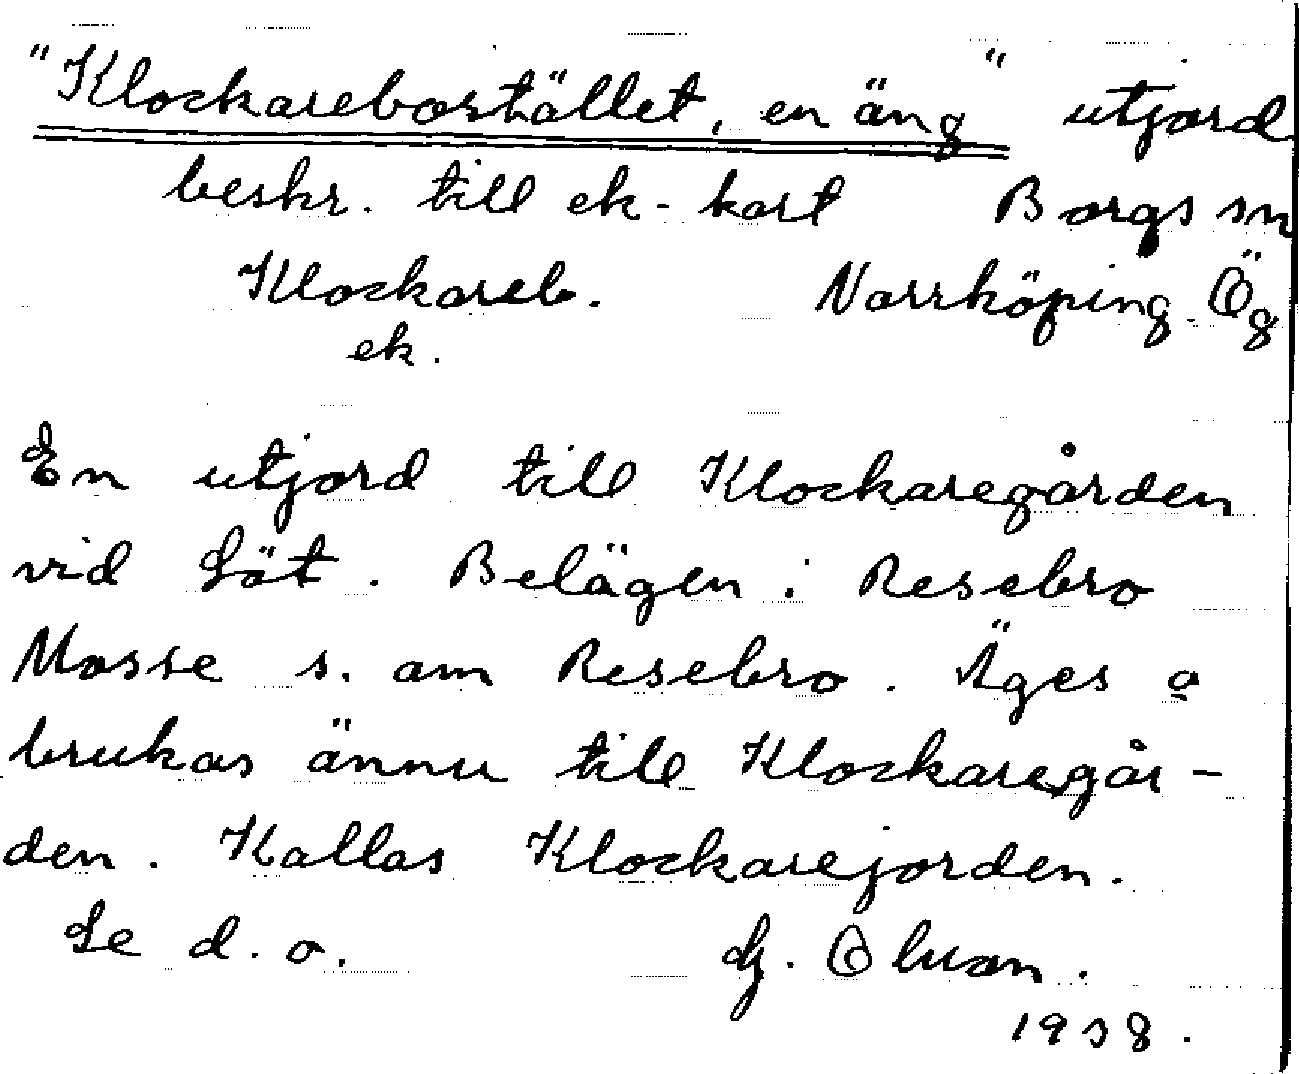 "Klockarebostället, en äng" utjord
beskr. till ek-kart Borgs sn
Klockareb. Norrköping Ög
ek.
En utjord till Klockaregården
vid Löt. Belägen i Resebro
Mosse s. om Resebro. Äges o
brukas ännu till Klockaregår-
den. Kallas Klockarejorden.
Se d.o. G.
1938.